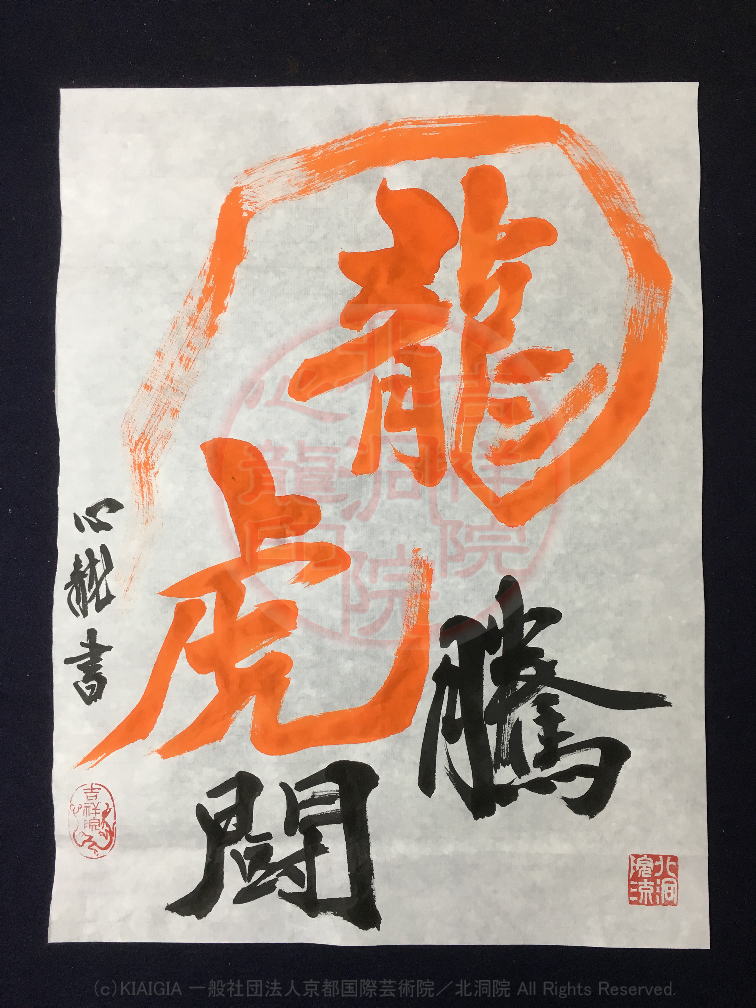 龍騰
虎闘
心龍書
吉祥院
北洞
院流
吉祥院
北洞院
心龍印
(c)KIAIGIA 一般社団法人京都国際芸術院／北洞院 All Rights Reserved.